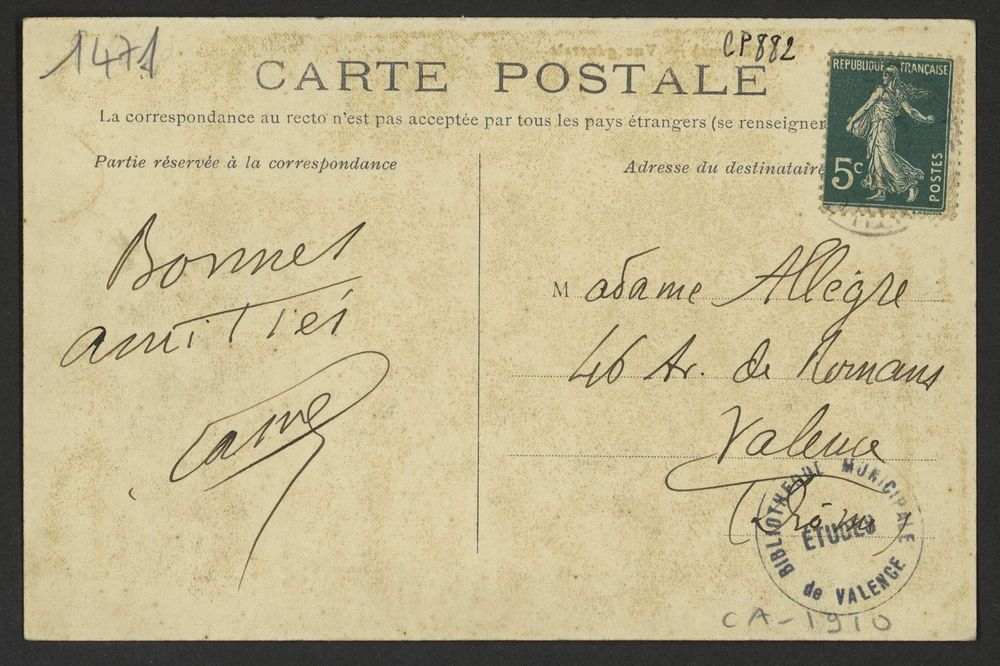 1471
CP882
CARTE POSTALE
La correspondance au recto n'est pas acceptée par tous les pays étrangers (se renseigner
Partie réservée à la correspondance
Adresse du destinataire
RÉPUBLIQUE FRANÇAISE
5c
POSTES
Bonnes
amitiés
Madame Allègre
46 Av. de Romans
Valence
(Drôme)
BIBLIOTHEQUE MUNICIPALE
ETUDES
de VALENCE
CA-1910